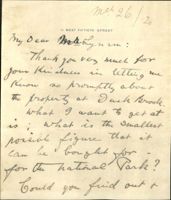 Mch 26/20
11 WEST FIFTIETH STREET
My Dear Lynam:
Thank you very much for
your kindness in letting me
know so promptly about
the property at Duck Brook.
What I want to get at
is; what is the smallest
possible figure that it
can be bought for -
for the National Park?
Could you find out &